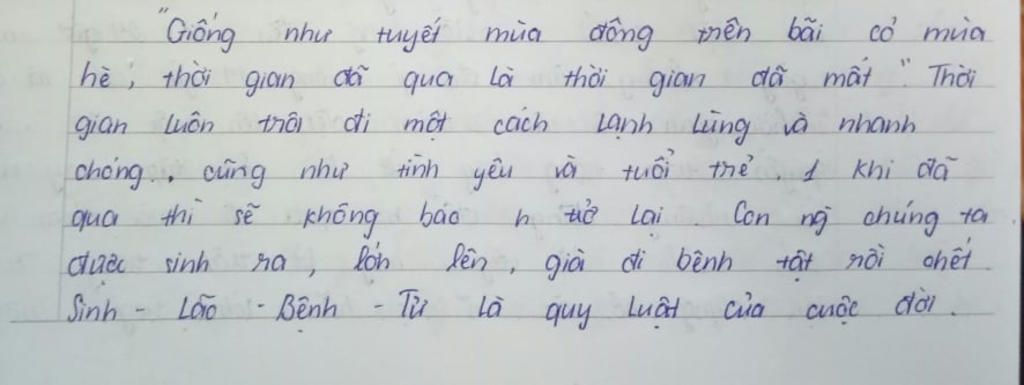 "Giống như tuyết mùa đông trên bãi cỏ mùa
hè, thời gian đã qua là thời gian đã mất". Thời
gian luôn trôi đi một cách lạnh lùng và nhanh
chóng.. cũng như tình yêu và tuổi trẻ 1 khi đã
qua thì sẽ không báo h trở lại. Con ng chúng ta
được sinh ra, lớn lên, già đi bệnh tật rồi chết.
Sinh - Lão - Bệnh - Tử là quy luật của cuộc đời.